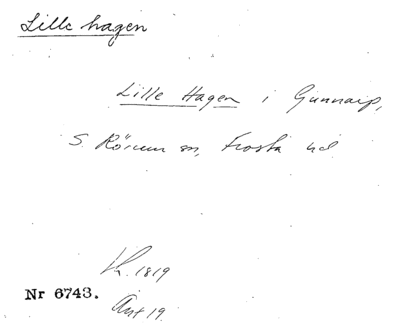 Lille hagen
Lille Hagen i Gunnarp,
S. Rörum sn, Frosta hd
Lh. 1819
Nr 6743.
Ant 19.